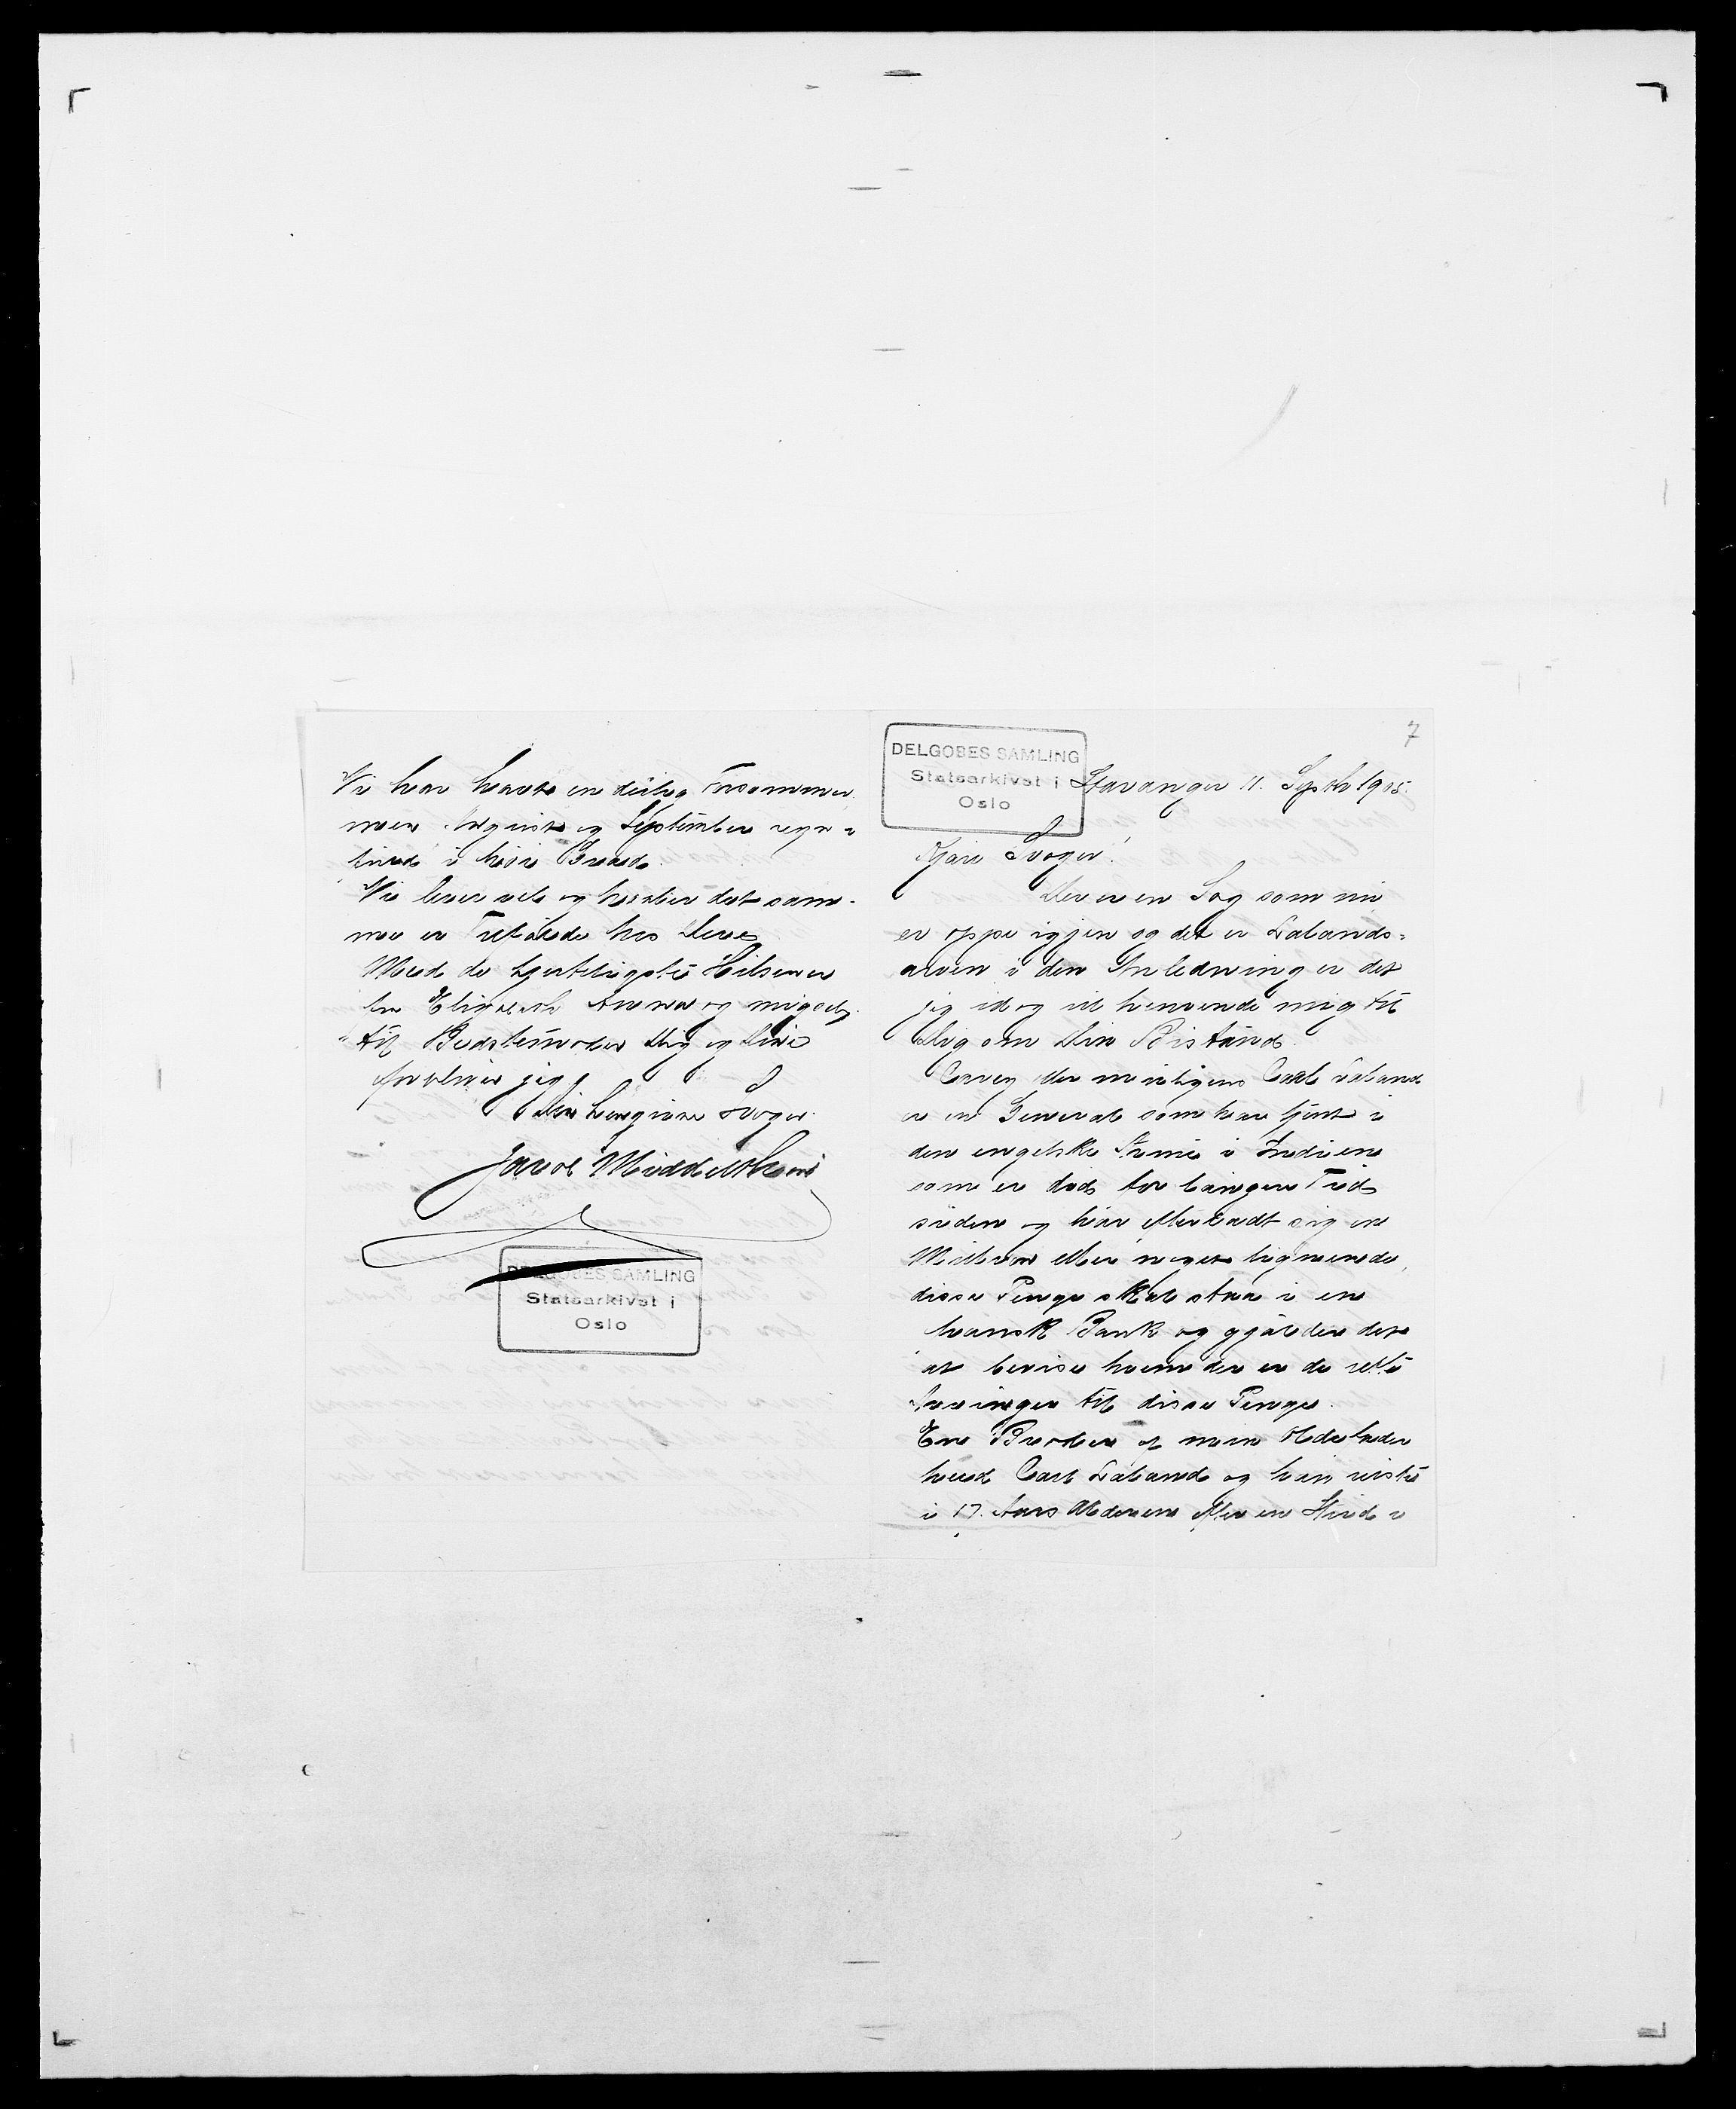 Vi har havt en deilig Forsommer
men August og September regn=
fuld i høieste Grad.
Vi lever vel og haaber det sam=
me er Tilfælde hos Dere
Med de hjerteligste Hilsener
fra Elisabeth Anna og mig selv
til Bedstemoder Dig og Dine
forbliver jeg
Din hengivne Svoger
Jacob Middelthon
DELGOBES SAMLING
Statsarkivet i
Oslo
7
DELGOBES SAMLING
Statsarkivet i
Oslo
Stavanger 11. Septbr 1905
Kjære Svoger!
Der er en Sag som nu
er oppe igjen og det er Labands=
arven i den Anledning er det
jeg idag vil henvende mig til
Dig om Din Bistand.
Arven efter Carl Laband
er en General som har tjent i
den engelske Armé i Indien
som er død for længere Tid
siden og har efterladt sig en
Million eller noget lignende,
disse Penge skal staa i en
Bank og gjælder det
at bevise hvem der er de rette
Arvinger til disse Penge.
En Broder af min Oldefader
hed Carl Laband og han reiste
i 17. Aars Alderen efter en Strid i